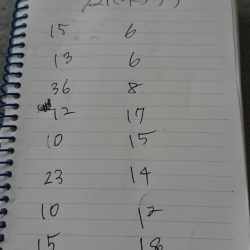 15 6
13 6
36 8
12 17
10 15
23 14
10 12
15 18